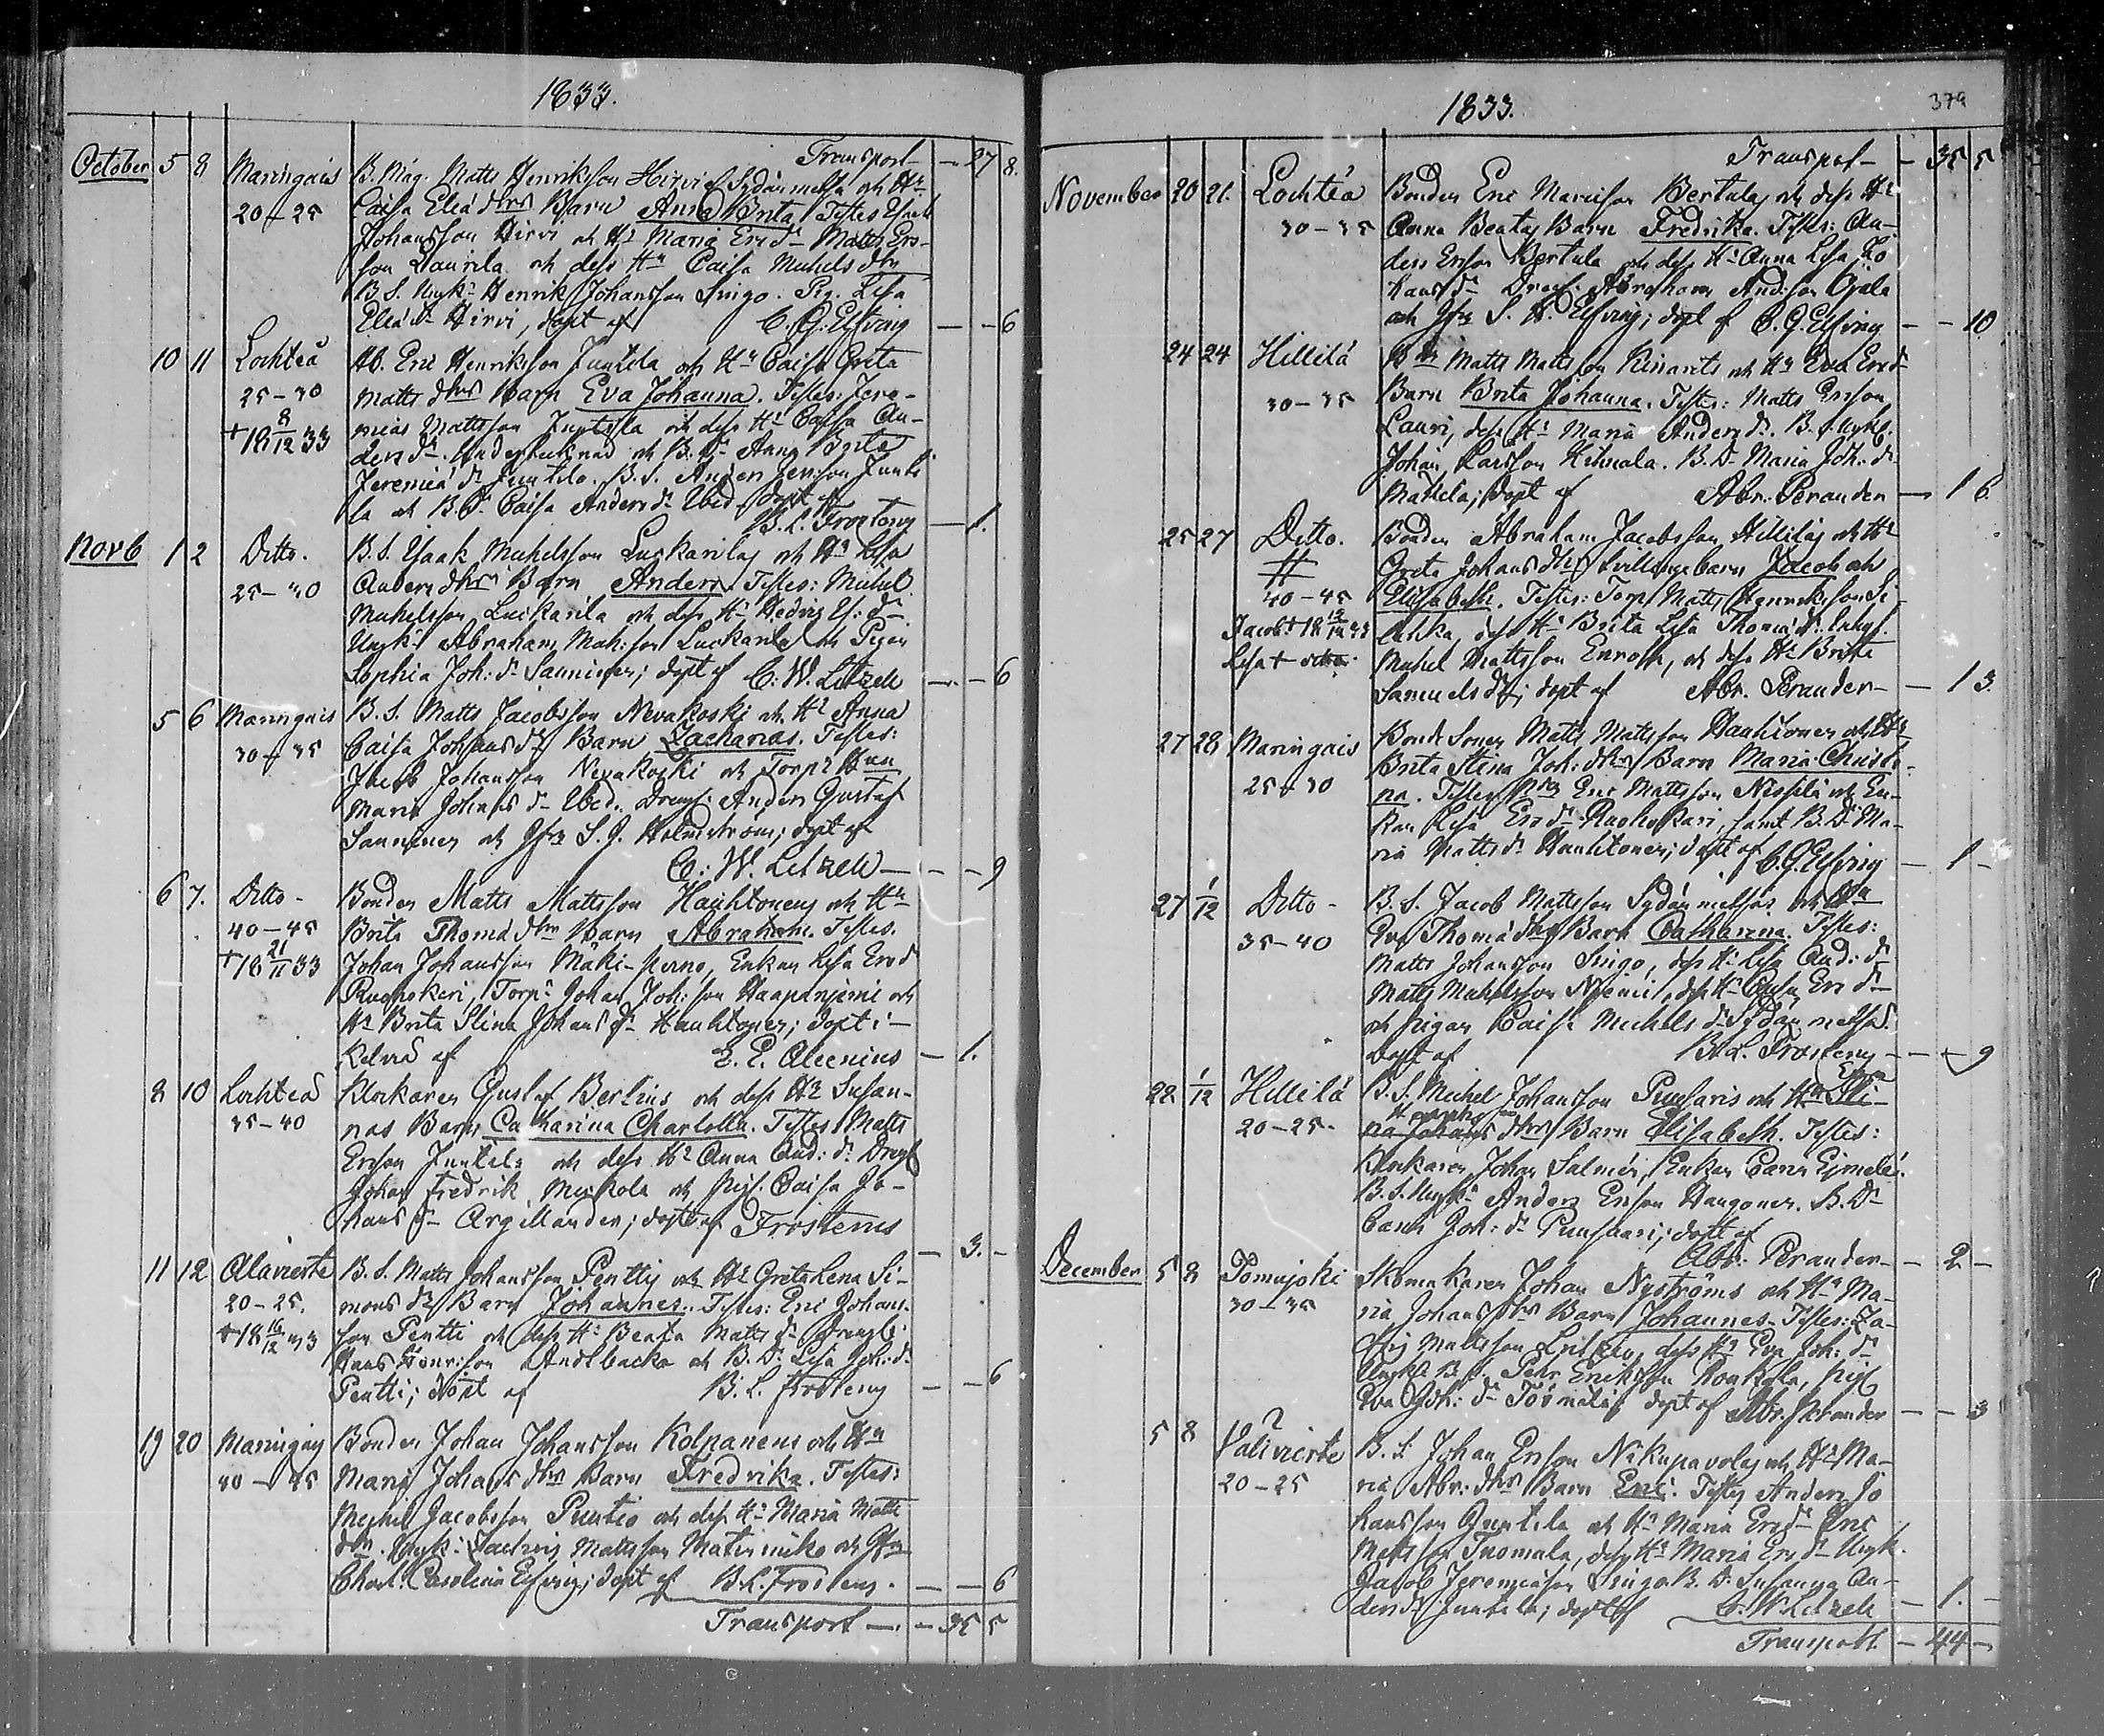 1833.
Transport — 27 8.
October 5 8 Maringais B. Måg. Matts Henriksson Hirvi Sydänmetsä och Hu
20–25 Caisa Eliædtrs Barn Anna Brita. Testes Isaak
Johansson Hirvi och Hu Maria Ersdr Matts Ers-
son Laurila och dess Hu Caisa Michelsdtr
B. S. Ungk: Henrik Johansson Singo. Pig. Lisa
Eliædr Hirvi, döpt af C. G. Elfving — – 6
10 11 Lochteå Ab. Eric Henriksson Juntila och Hu Caisa Greta
25–30 Mattsdtrs Barn Eva Johanna. Testes: Jere-
† 18 8/12 33 mias Mattsson Juntila och dess Hu Caisa An-
dersdr. och B. Dr Anna Brita
Jeremiædr Juntila. B. S. Anders Jer:son Junti-
la och B. Dr Caisa Andersdr Ibid. döpt af
B. L. Frosterus — 1.
Novb 1 2 Ditto. B. S. Isaak Michelsson Luckarilas och Hu Lisa
25–30 Andersdtrs Barn Anders. Testes: Michel
Michelsson Luckarila och dess Hu Hedvig Is:dr
Ungk: Abraham Mich:son Luckarila och Pigan
Sophia Joh:dr Sauninen; döpt af C. W. Litzelt — – 6
5 6 Maringais B. S. Matts Jacobsson Nevakoski och Hu Anna
30–35 Caisa Johansdrs Barn Zacharias. Testes:
Jacob Johansson Nevakoski och Torp: Hun
Maria Johansdr Ibid. Dreng: Anders Gustaf
Sauninen och Jfru S. J. Holmström; döpt af
C: W. Litzelt — – 9
6 7. Ditto – Bonden Matts Mattsson Hauhtonens och Hu
40–45 Brita Thomædtrs Barn Abraham. Testes.
† 18 21/11 33 Johan Johansson Mäki-Perno, Enkan Lisa Ersd
Ruohokari, Torp: Johan Joh:son Haapaniemi och
Hu Brita Stina Johansdr Hauhtonen; döpt i
Kelviå af E. E. Aleenius — 1.
8 10 Lochteå Klockaren Gustaf Berlins och dess Hu Susan-
35–40 nas Barn Catharina Charlotta. Testes: Matts
Ersson Juntila och dess Hu Anna And:dr Dreng
Johan Fredrik Myckola och Pig. Caisa Jo-
hansdr Argillander; döpt af Frosterus
— 3. –
11 12 Alavieste B. S. Matts Johansson Penttis och Hu Greta Lena Si-
20–25. monsdrs Barn Johannes. Testes: Eric Johans-
† 18 16/12 33 son Pentti och dess Hu Beata Mattsdr Drengk:
Hans Henr:son Andtbacka och B. Dr Lisa Joh:dr
Pentti; döpt af B. L. Frosterus — – 6
19 20 Maringais Bonden Johan Johansson Kolpanens och Hu
40–45 Maria Johansdtrs Barn Fredrika. Testes:
Michel Jacobsson Puutio och dess Hu Maria Matts
dtr. Ungk: Zachris Mattsson Matinmiko och Jfru
Charl. Carolina Elfving; döpt af B. L. Frosterus. — – 6
Transport — – 35 5
1833. 379
Transport — 35 5
November 20 21. Lochteå Bonden Eric Mariison Bertulas och dess Hu
30–35 Anna Beatas Barn Fredrika. Testes: An-
ders Ersson Bertula och dess Hu Anna Lisa Jo-
hansdr Dreng: Abraham Andsson Ojala
och Jfru S. H. Elfving; döpt af C. G. Elfving — – 10
24 24 Hillilä Matts Mattsson Kinarits och Hu Eva Ersd
30–35 Barn Brita Johanna. Testes: Matts Ersson
Lauri, dess Hu Maria Andersdr. B. S. Ungk.
Johan Larsson Hihnala. B. Dr Maria Joh:dr
Mattila; döpt af Abr. Perander — 1 6.
25 27 Ditto. Bonden Abraham Jacobsson Hillilä och Hu
# Greta Johansdtrs tvillingebarn Jacob och
40–45 Elisabeth. Testes: Torp: Matts Henriksson Si-
Jacob † 18 12/12 33 lahka, dess Hu Brita Lisa Thomædr. Inhys.
Lisa † Michel Mattsson Enroth, och dess Hu Brita
Samuelsdr; döpt af Abr. Perander — 1 3.
27 28 Maringais Bonde Sonen Matts Mattsson Hauhtonen och Hu
25–30 Brita Stina Joh:dtrs Barn Maria Christi-
na. Testes Eric Mattsson Nissilä och En-
kan Lisa Ersdr Ruohokari, samt B. Dr Ma-
ria Mattsdr Hauhtonen; döpt af C. G. Elfving — 1 –
27 1/12 Ditto – B. S. Jacob Mattsson Sydänmetsäs och Hu
35–40 Eva Thomædtrs Barn Catharina. Testes:
Matts Johansson Singo, dess Hu Lisa And:dr
Matts Michelsson Niemi, dess Hu Caisa Ersdr
och Pigan Caisa Michelsdr Sydänmetsä.
döpt af B. L. Frosterus — – 9
28 1/12 Hillilä B. S. Michel Johansson Puusaris och Hu
20–25. Barn Elisabeth. Testes:
Klockaren Johan Salmén, Enkan Carin
B. S. Ungk: Anders Ersson Haugonen. B. Dr
Carin Joh:dr Puusaari; döpt af
Abr: Perander — 2 –
December 5 8 Tomujoki Skomakaren Johan Nyströms och Hu Ma-
30–35 ria Johansdtrs Barn Johannes. Testes: Za-
chris Mattsson Leitzo, dess Hu Eva Joh:dr
Ungk: B. S. Pehr Eriksson Ronkola, Pig.
Eva Joh:dr Törmälä; döpt af Abr. Perander — – 3
5 8 ? Ylivieste B. S. Johan Ersson Nikupavolas och Hu Ma-
20–25 ria Abr:dtrs Barn Eric. Testes Anders Jo-
hansson Juntila och Hu Maria Ersdr Eric
Matts:son Tuomala, dess Hu Maria Ersdr Ungk.
Jacob Jeremiæson Singo. B. Dr Susanna An-
dersdr Juntila; döpt af C. W. Litzelt — 1. –
Transport — 44 –